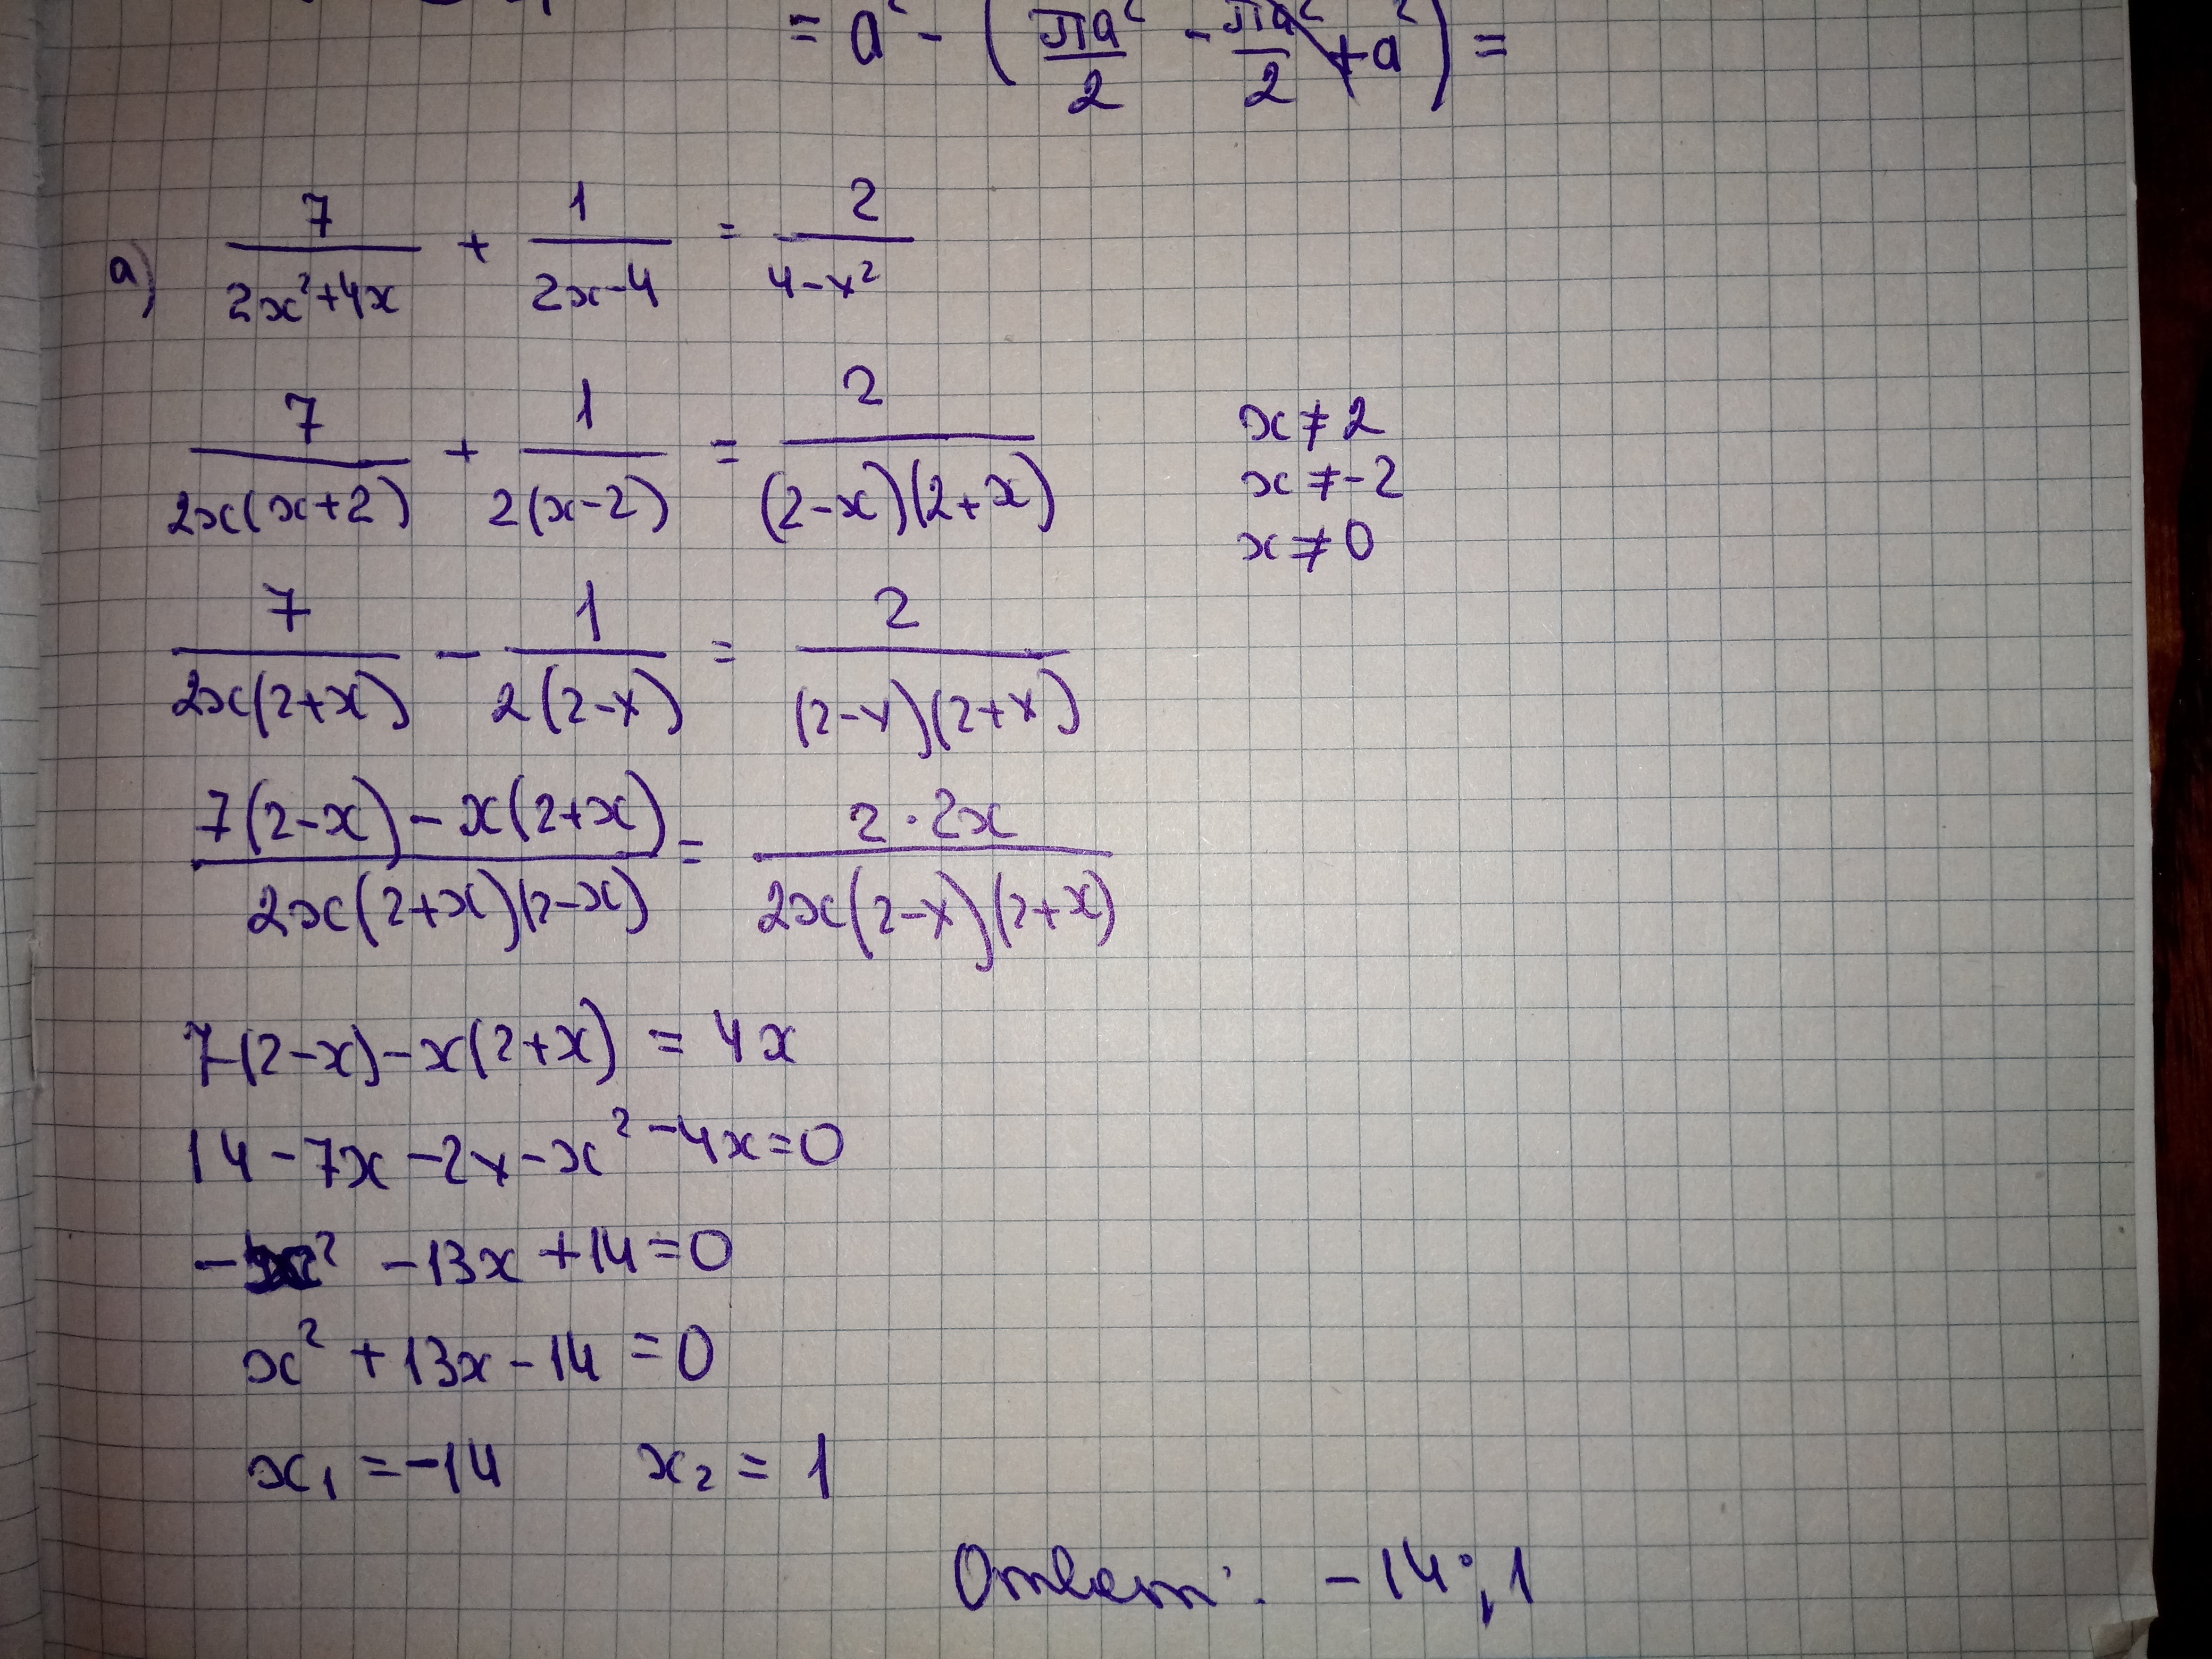 = a² - (πa²/2 - πa²/2 + a²) =
а) 7/(2x²+4x) + 1/(2x-4) = 2/(4-x²)
7/(2x(x+2)) + 1/(2(x-2)) = 2/((2-x)(2+x))
x ≠ 2
x ≠ -2
x ≠ 0
7/(2x(2+x)) - 1/(2(2-x)) = 2/((2-x)(2+x))
(7(2-x) - x(2+x))/(2x(2+x)(2-x)) = (2·2x)/(2x(2-x)(2+x))
7(2-x) - x(2+x) = 4x
14 - 7x - 2x - x² - 4x = 0
-x² - 13x + 14 = 0
x² + 13x - 14 = 0
x₁ = -14 x₂ = 1
Ответ: -14; 1